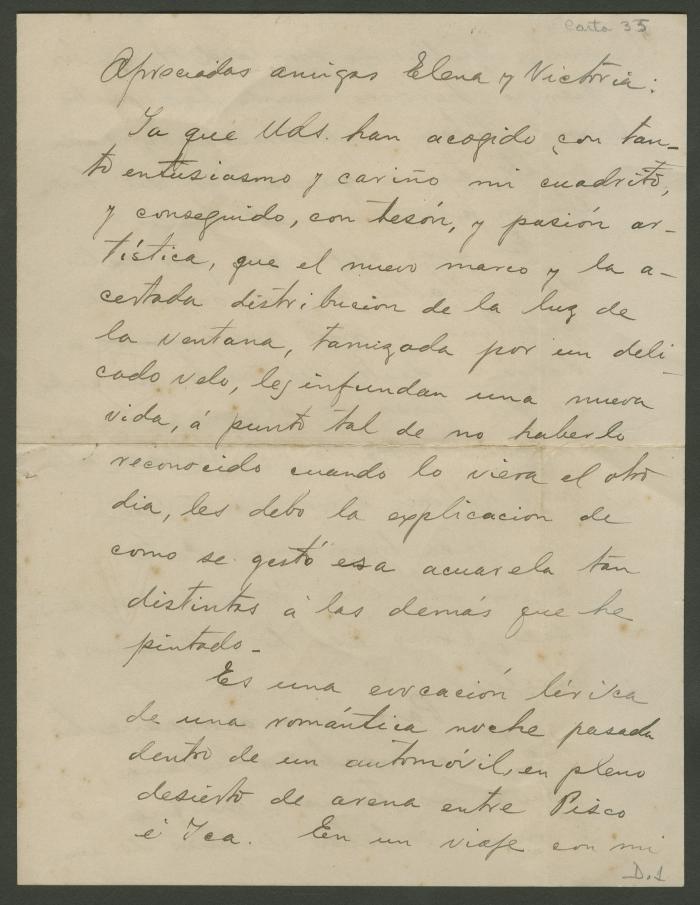 Carta 35
Apreciadas amigas Elena y Victoria:
Ya que Uds. han acogido con tan-
to entusiasmo y cariño mi cuadrito,
y conseguido, con tesón, y pasión ar-
tística, que el nuevo marco y la a-
certada distribucion de la luz de
la ventana, tamizada por un deli-
cado velo, les infundan una nueva
vida, á punto tal de no haberlo
reconocido cuando lo viera el otro
dia, les debo la explicacion de
como se gestó esa acuarela tan
distintas á las demás que he
pintado-
Es una evocación lírica
de una romántica noche pasada
dentro de un automóvil, en pleno
desierto de arena entre Pisco
é Ica. En un viaje con mi
D.1